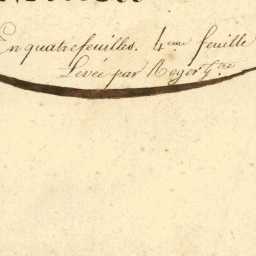 En quatre feuilles. 4eme feuille
Levée par Roger Gtre